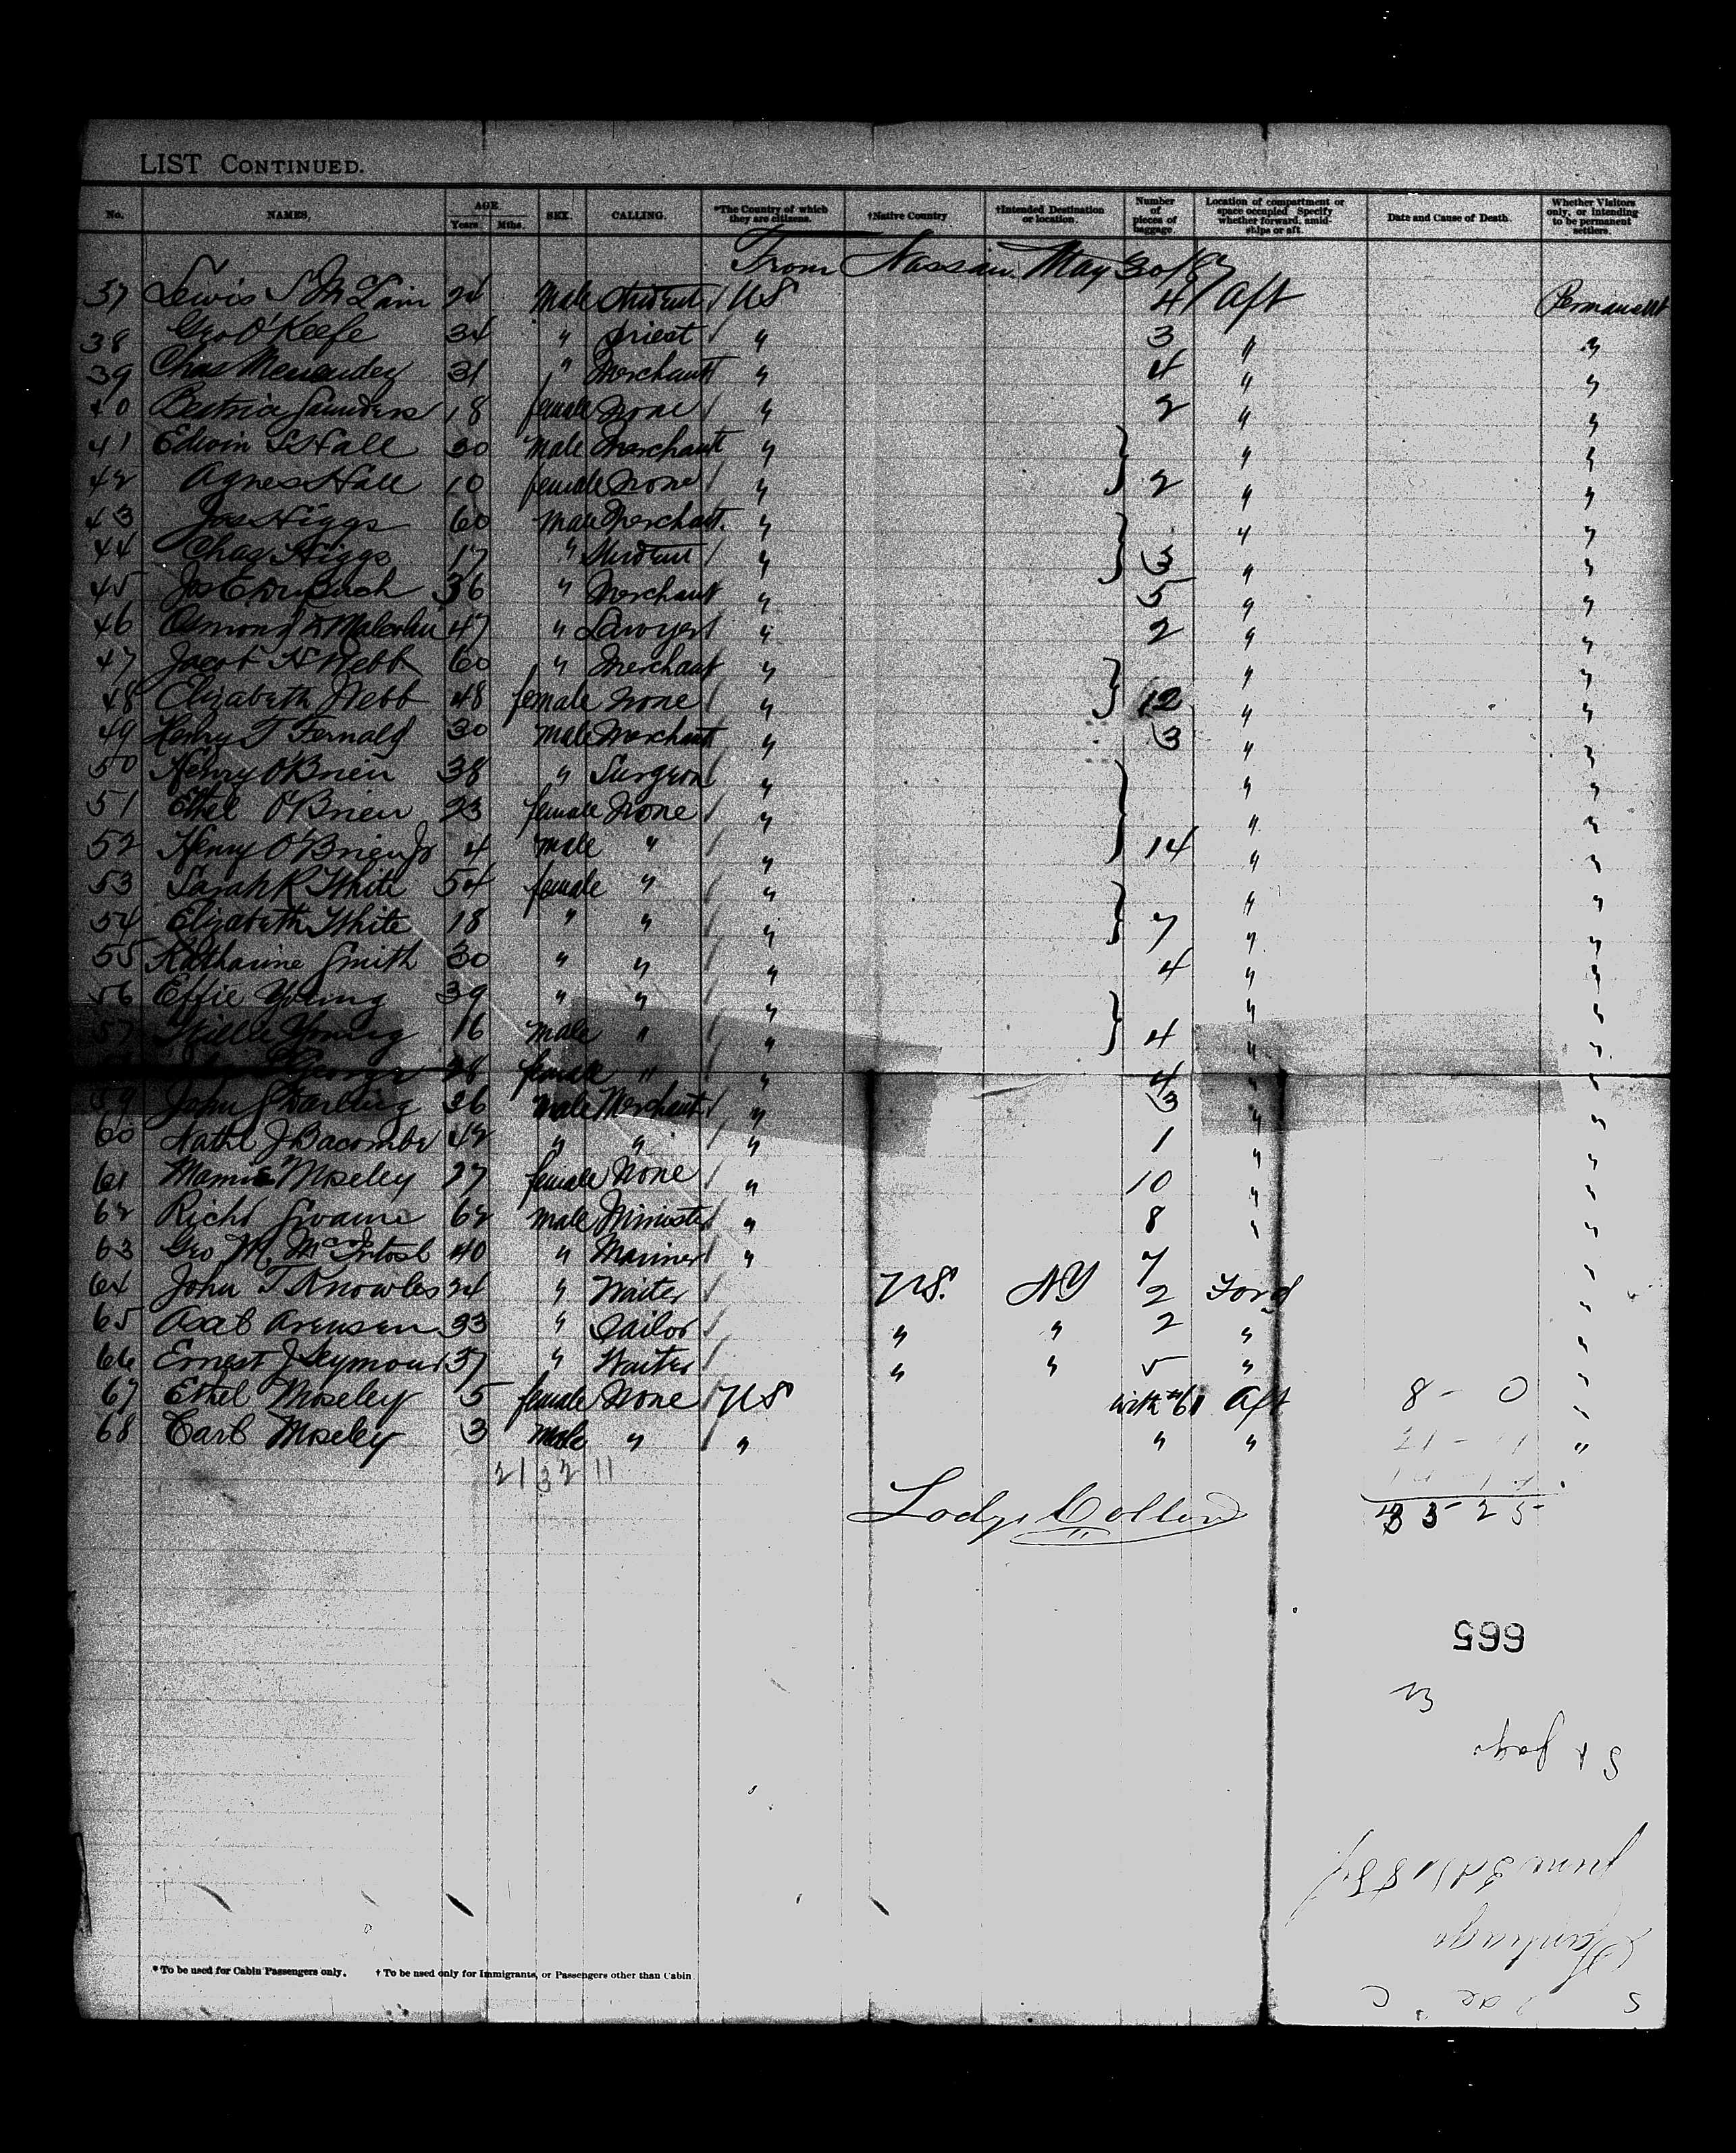 LIST CONTINUED.
No. NAMES, AGE. Years. Mths. SEX. CALLING. *The Country of which they are citizens. †Native Country †Intended Destination or location. Number of pieces of baggage Location of compartment or space occupied Specify whether forward, amidships or aft Date and Cause of Death. Whether Visitors only, or intending to be permanent settlers.
From Nassau May 30/87
37 Lewis 24 Male Student / US 4 Aft Permanent
38 Geo O'Keefe 34 " Priest / " 3 " "
39 Chas Menendez 31 " Merchant " 4 " "
40 Saunders 18 female None / " 2 " "
41 Edwin Hall 30 male Merchant " } " "
42 Agnes Hall 10 female None / " 2 " "
43 Jas Higgs 60 male Merchant. " } " "
44 Chas Higgs 17 " Student / " 3 " "
45 36 " Merchant " 5 " "
46 Malcolm 47 " Lawyer / " 2 " "
47 Jacob H Webb 60 " Merchant " } " "
48 Elizabeth Webb 48 female none / " 12 " "
49 Henry T Fernald 30 male Merchant " 3 " "
50 Henry O'Brien 38 " Surgeon " } " "
51 Ethel O'Brien 23 female None / " " "
52 Henry O'Brien Jr 4 male " / " 14 " "
53 Sarah R White 54 female " / " } " "
54 Elizabeth White 18 " " / " 7 " "
55 Katharine Smith 30 " " / " 4 " "
56 Effie Young 39 " " / " } " "
57 Willie Young 16 male " / " 4 " "
George 28 female " / " 4 " "
59 John S Darling 26 male Merchant / " 3 " "
60 Nathl J Bacombe 42 " " / " 1 " "
61 Mamie Moseley 27 female None / " 10 " "
62 Richd Swaine 62 male Minister / " 8 " "
63 Geo M. McIntosh 40 " Mariner / " 7 "
64 John T Knowles 24 " Waiter / US. NY 2 Ford "
65 33 " Sailor / " " 2 " "
66 Ernest J Seymour 37 " Waiter / " " " "
67 Ethel Moseley 5 female None / US with #61 Aft 8 - 0 "
68 Carl Moseley 3 male " / " " " 21 - 11 "
21 32 11
35 - 25
665
June 3d 1887
Santiago
* To be used for Cabin Passengers only. † To be used only for Immigrants, or Passengers other than Cabin